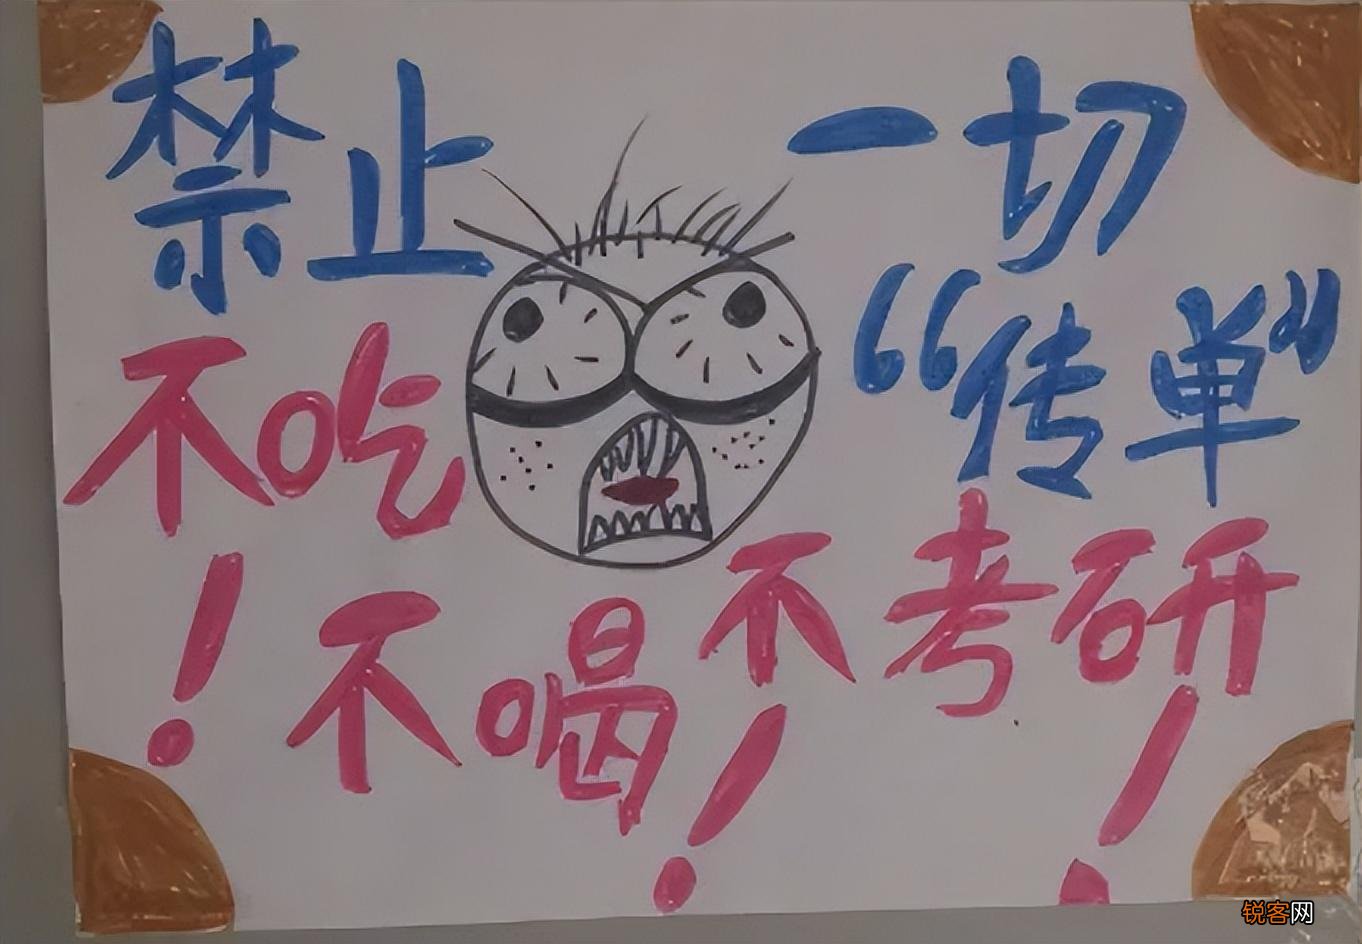 禁止一切
“传单”
不吃！不喝！不考研！
锐客网